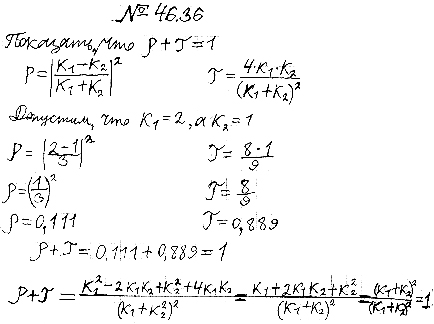 № 46.36
Показать, что ρ + T = 1
ρ = |K₁ - K₂ / K₁ + K₂|² T = 4·K₁·K₂ / (K₁ + K₂)²
Допустим, что K₁ = 2, а K₂ = 1
ρ = |2 - 1 / 3|² T = 8·1 / 9
ρ = (1/3)² T = 8/9
ρ = 0,111 T = 0,889
ρ + T = 0,111 + 0,889 = 1
ρ + T = K₁² - 2K₁K₂ + K₂² + 4K₁K₂ / (K₁ + K₂²)² = K₁ + 2K₁K₂ + K₂² / (K₁ + K₂)² = (K₁ + K₂)² / (K₁ + K₂)² = 1.